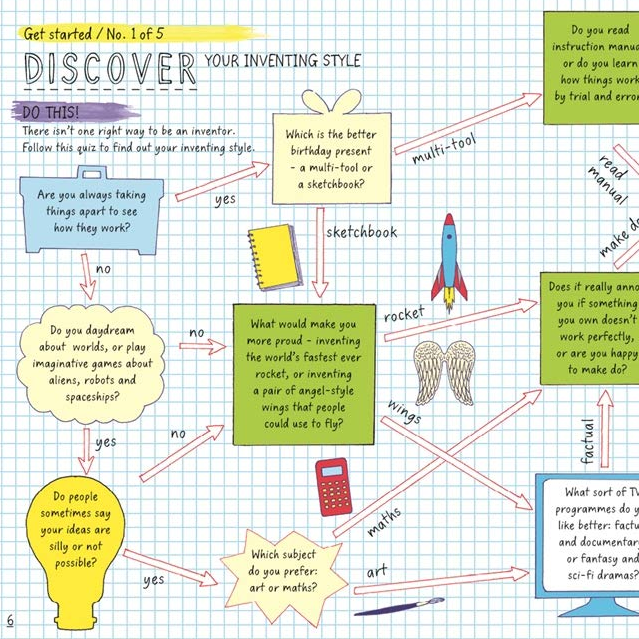 Get started / No. 1 of 5
DISCOVER YOUR INVENTING STYLE
DO THIS!
There isn't one right way to be an inventor.
Follow this quiz to find out your inventing style.
Are you always taking
things apart to see
how they work?
yes
no
Which is the better
birthday present
- a multi-tool or
a sketchbook?
multi-tool
sketchbook
Do you read
instruction
or do you learn
how things work
by trial and
read
manual
make do
Do you daydream
about worlds, or play
imaginative games about
aliens, robots and
spaceships?
no
yes
What would make you
more proud - inventing
the world's fastest ever
rocket, or inventing
a pair of angel-style
wings that people
could use to fly?
rocket
wings
Does it really
you if something
you own doesn't
work perfectly,
or are you happy
to make do?
factual
Do people
sometimes say
your ideas are
silly or not
possible?
no
yes
Which subject
do you prefer:
art or maths?
maths
art
What sort of
programmes do
like better:
and
or fantasy and
sci-fi dramas?
6